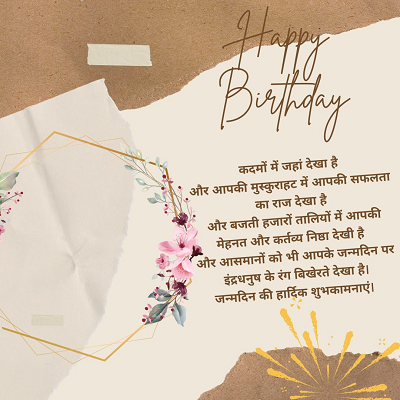 Happy
Birthday
कदमों में जहां देखा है
और आपकी मुस्कुराहट में आपकी सफलता
का राज देखा है
और बजती हजारों तालियों में आपकी
मेहनत और कर्तव्य निष्ठा देखी है
और आसमानों को भी आपके जन्मदिन पर
इंद्रधनुष के रंग बिखेरते देखा है।
जन्मदिन की हार्दिक शुभकामनाएं।